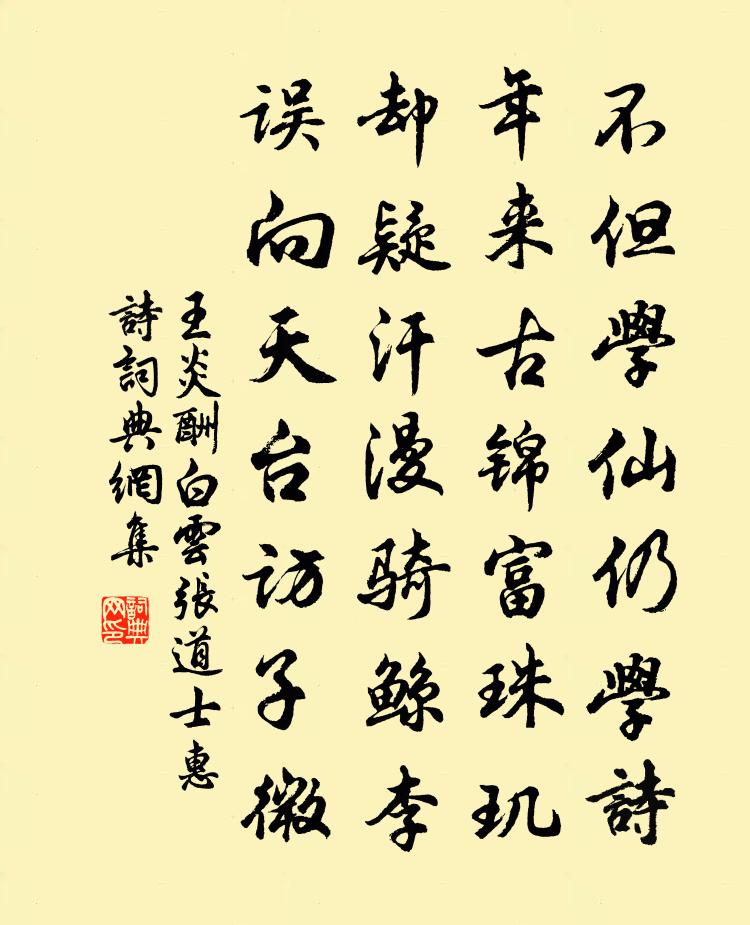 不但學仙仍学詩
年来古锦富珠玑
却疑汗漫骑鲸李
误向天台访子微
王炎酬白雲張道士惠
詩詞典網集
詞典网印